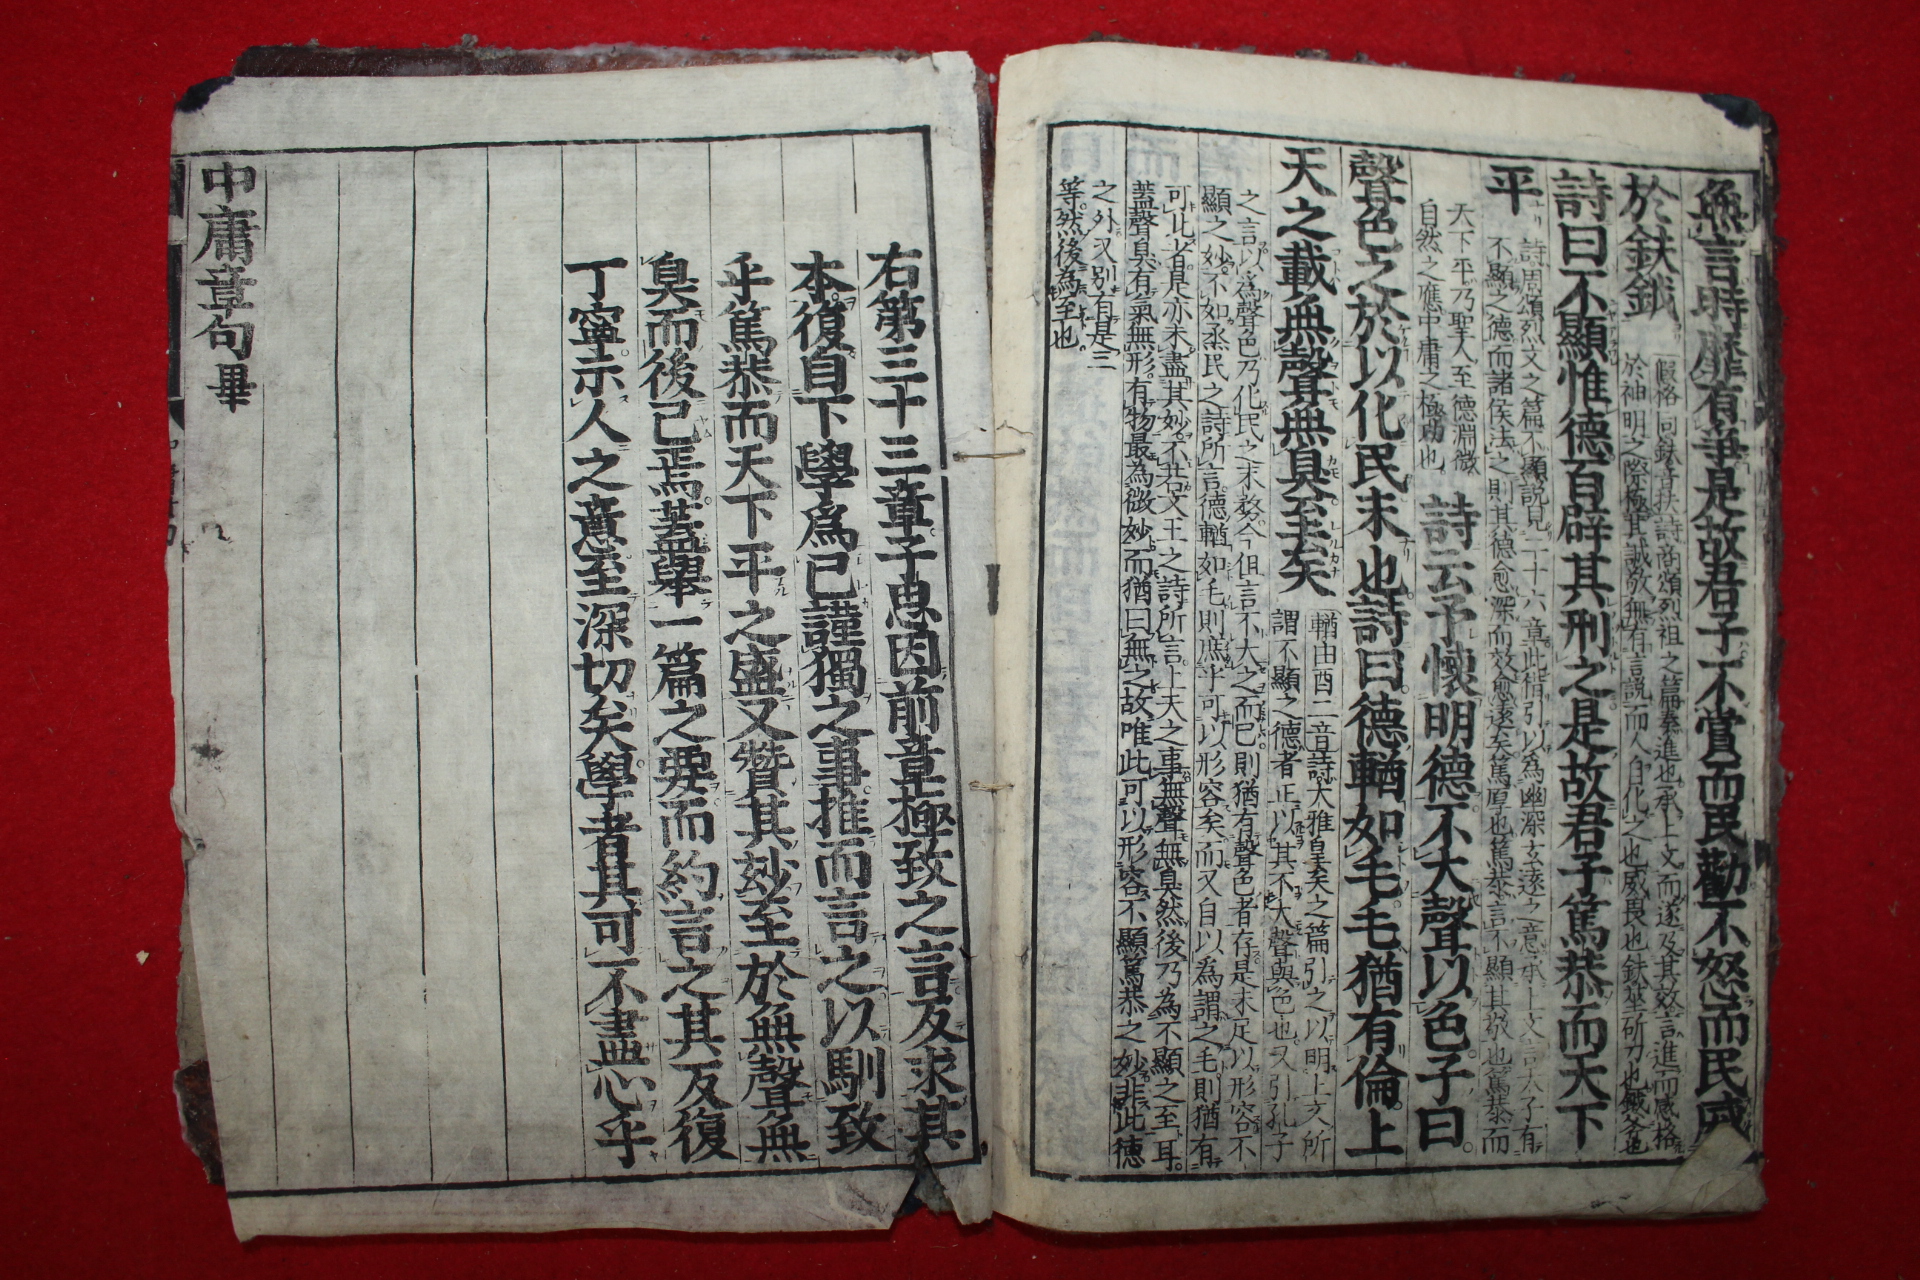 無言時靡有爭是故君子不賞而民勸不怒而民威
於鈇鉞
假格同鈇音扶詩商頌烈祖之篇奏進也承上文而遂及其效言進而感格
於神明之際極其誠敬無有言說而人自化之也威畏也鈇莝斫刀也鉞斧也
詩曰不顯惟德百辟其刑之是故君子篤恭而天下
平
詩周頌烈文之篇不顯說見二十六章此借引以為幽深玄遠之意承上文言天子有
不顯之德而諸侯法之則其德愈深而效愈遠矣篤厚也篤恭言不顯其敬也篤恭而
天下平乃聖人至德淵微
自然之應中庸之極功也
詩云予懷明德不大聲以色子曰
聲色之於以化民末也詩曰德輶如毛毛猶有倫上
天之載無聲無臭至矣
輶由酉二音詩大雅皇矣之篇引之以明上文所
謂不顯之德者正以其不大聲與色也又引孔子
之言以為聲色乃化民之末務今但言不大之而已則猶有聲色者存是未足以形容不
顯之妙不如烝民之詩所言德輶如毛則庶乎可以形容矣而又自以為謂之毛則猶有
可比者是亦未盡其妙不若文王之詩所言上天之事無聲無臭然後乃為不顯之至耳
蓋聲臭有氣無形有物最為微妙而猶曰無之故唯此可以形容不顯篤恭之妙非此德
之外又別有是三
等然後為至也
右第三十三章子思因前章極致之言反求其
本復自下學爲己謹獨之事推而言之以馴致
乎篤恭而天下平之盛又贊其妙至於無聲無
臭而後已焉蓋舉一篇之要而約言之其反復
丁寧示人之意至深切矣學者其可不盡心乎
中庸章句畢